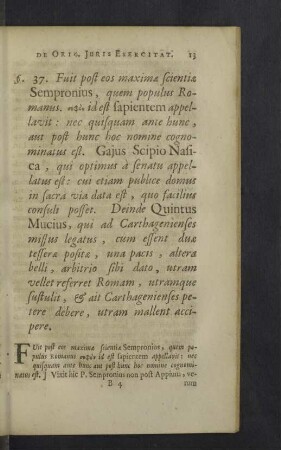 DE ORIG. JURIS EXERCITAT. 13
§. 37. Fuit post eos maximæ scientiæ
Sempronius, quem populus Ro-
manus. σοφὸν id est sapientem appel-
lavit: nec quisquam ante hunc,
aut post hunc hoc nomine cogno-
minatus est. Gajus Scipio Nasi-
ca, qui optimus à senatu appel-
latus est: cui etiam publice domus
in sacra via data est, quo facilius
consuli posset. Deinde Quintus
Mucius, qui ad Carthagenienses
missus legatus, cum essent duæ
tesseræ positæ, una pacis, altera
belli, arbitrio sibi dato, utram
vellet referret Romam, utramque
sustulit, & ait Carthagenienses pe-
tere debere, utram mallent acci-
pere.
Fuit post eos maximæ scientiæ Sempronius, quem po-
pulus Romanus σοφὸν id est sapientem appellavit: nec
quisquam ante hunc aut post hunc hoc nomine cognomi-
natus est. ] Vixit hic P. Sempronius non post Appium, ve-
B 4 rum